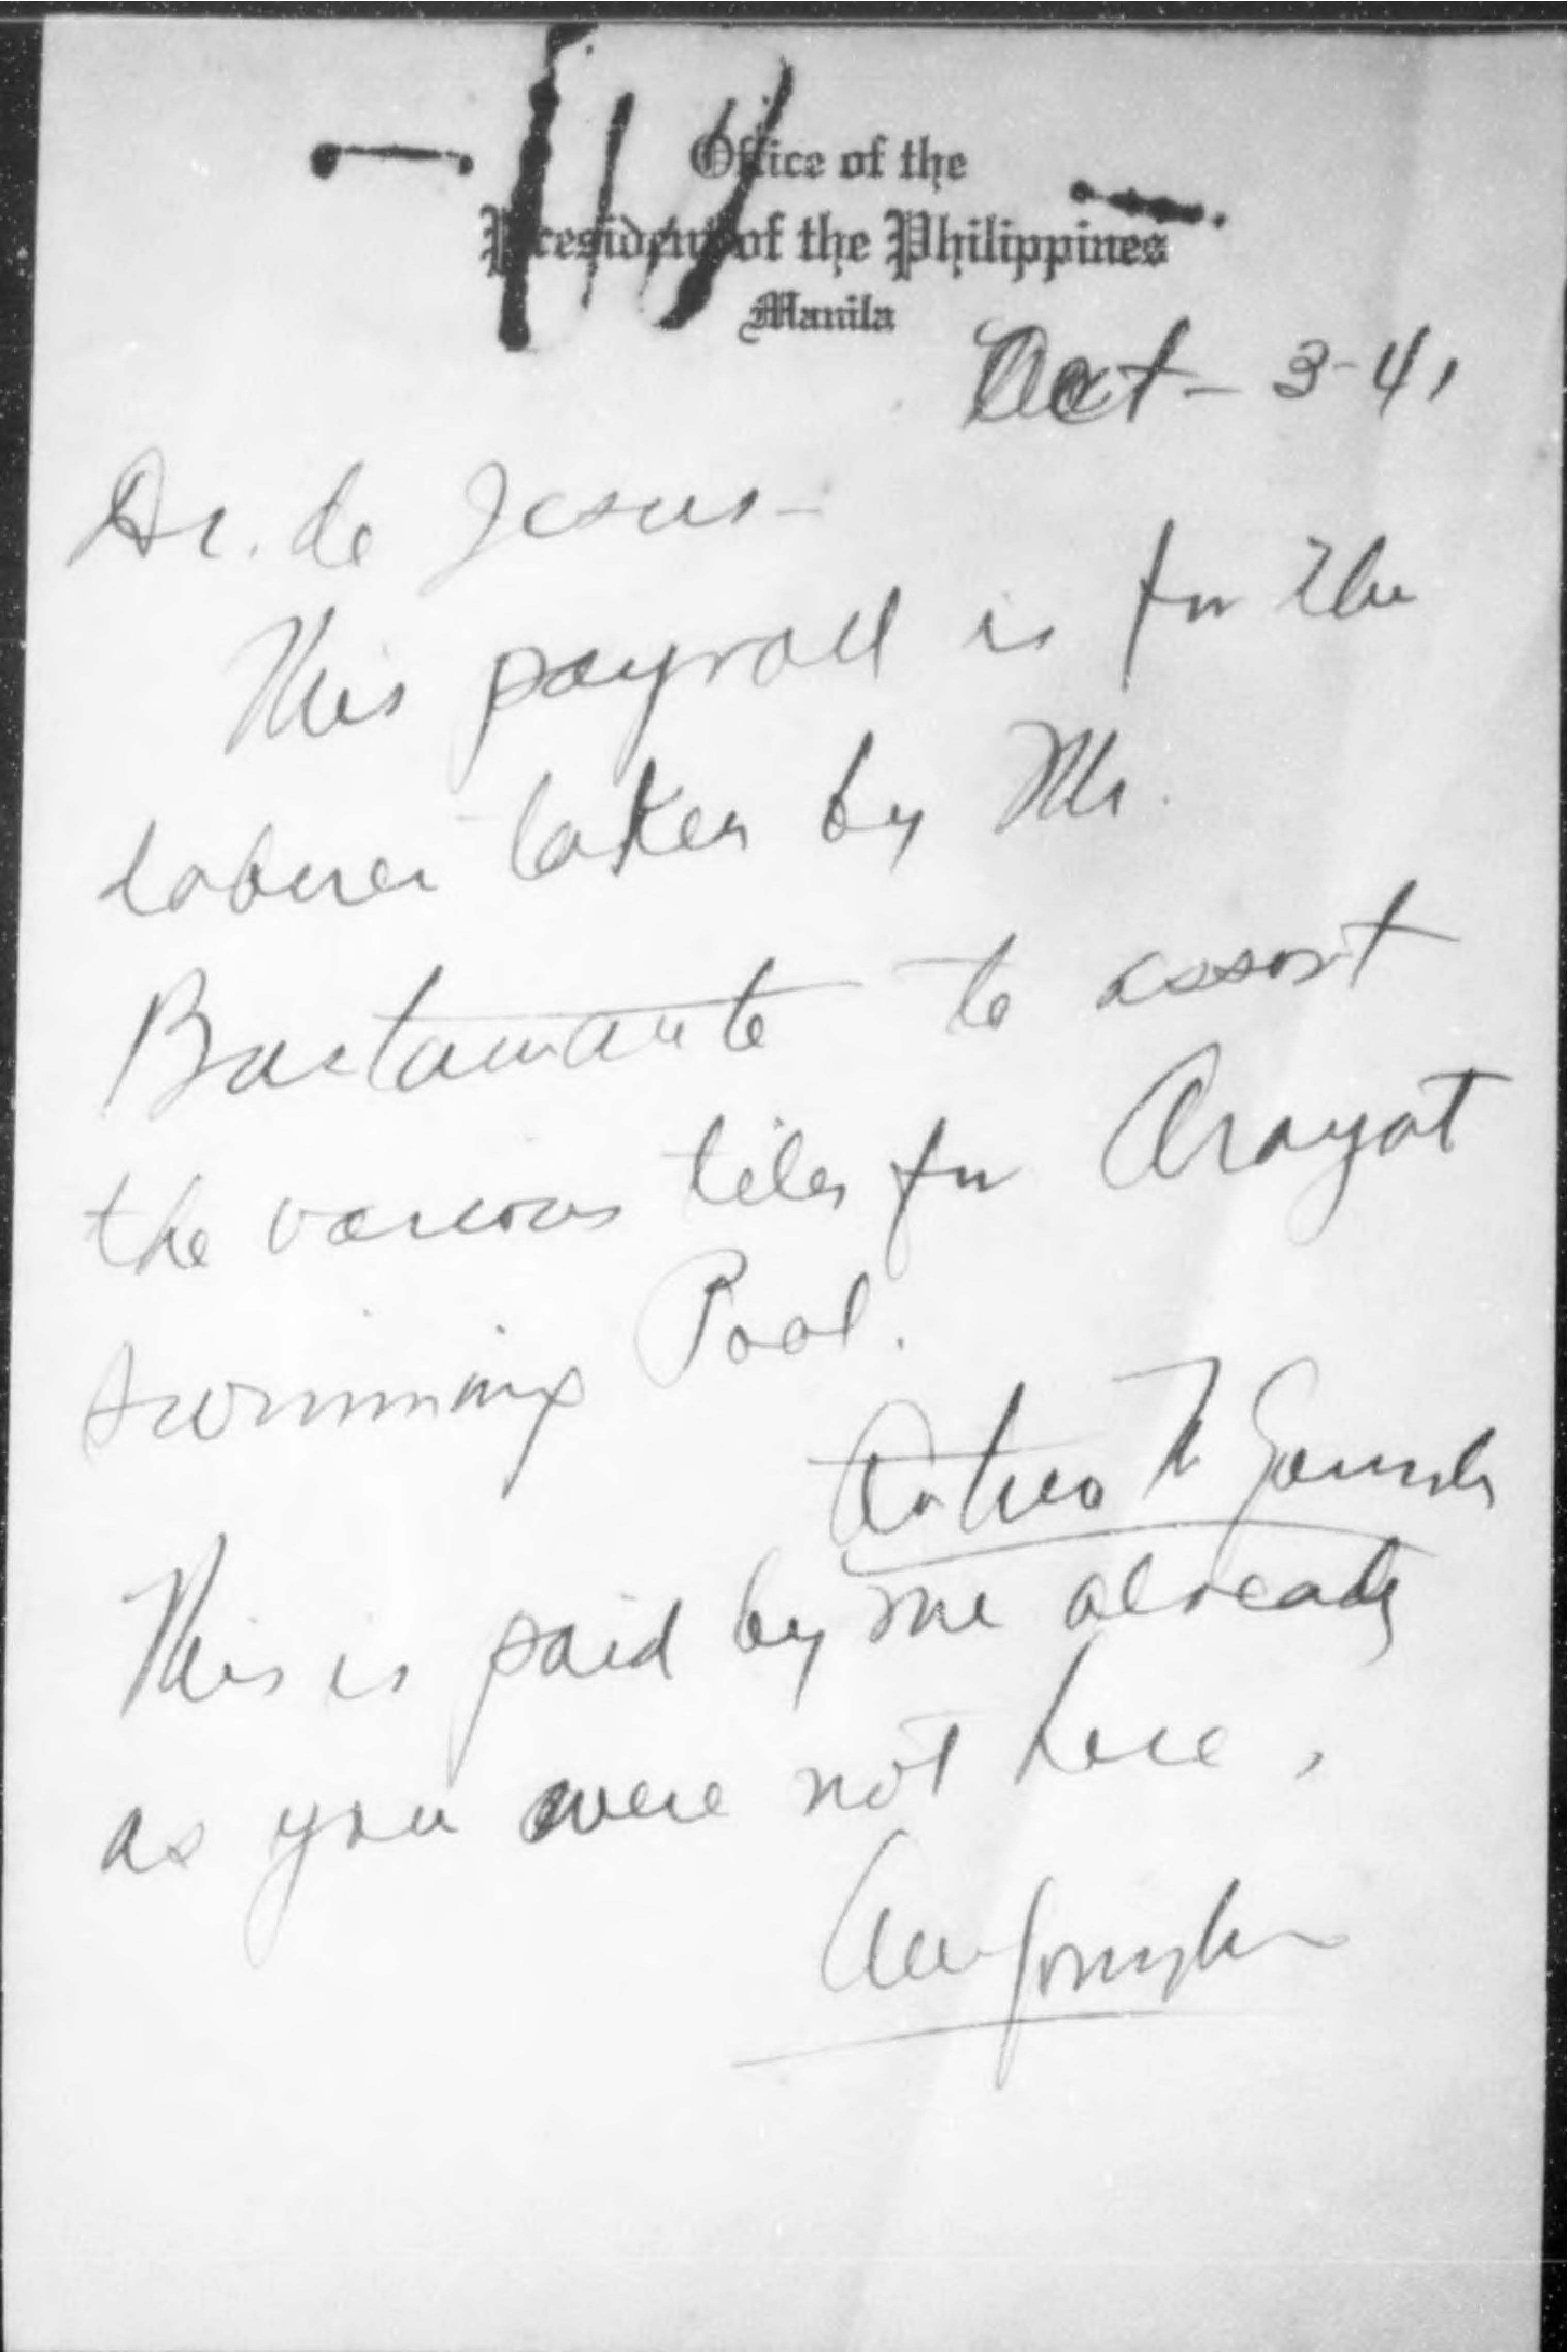 Office of the
President of the Philippines
Manila
Oct - 3-41
Dr. de Jesus -
This payroll is for the
laborer taken by Mr.
Bustamante to assort
the various tiles for Arayat
swimming Pool.
Arturo
This is paid by me already
as you were not here,